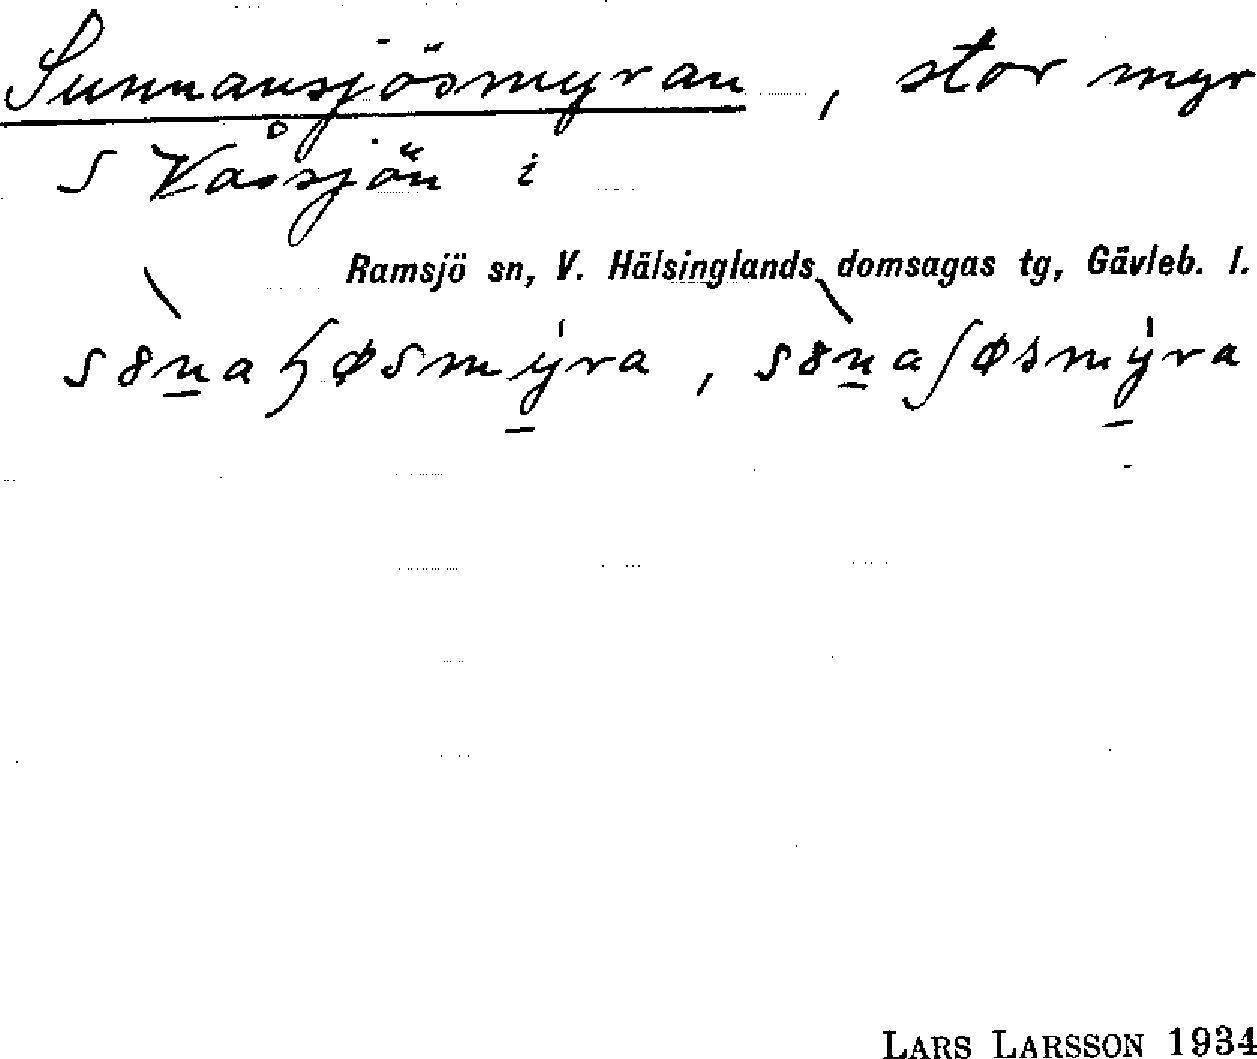 Sunnansjösmyran, stor myr
S Kåsjön i
Ramsjö sn, V. Hälsinglands domsagas tg, Gävleb. l.
LARS LARSSON 1934